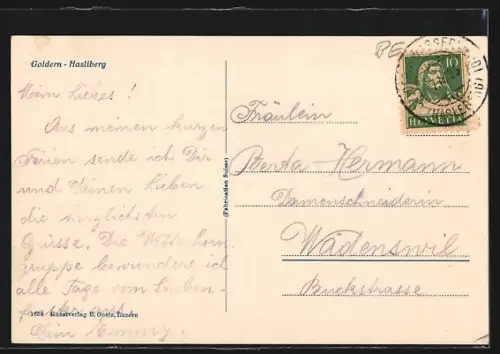 Goldern - Hasliberg
Mein Liebes!
Aus meinen kurzen
Ferien sende ich Dir
und Deinen Lieben
die herzlichsten
Grüsse. Die Wetterhorn
gruppe bewundere ich
alle Tage vom Lauben-
fenster aus.
Dein
1609 Kunstverlag E. Goetz, Luzern
(Fabrication Suisse)
BE
10
HELVETIA
Fräulein
Berta Hermann
Damenschneiderin
Wädenswil
Buckstrasse